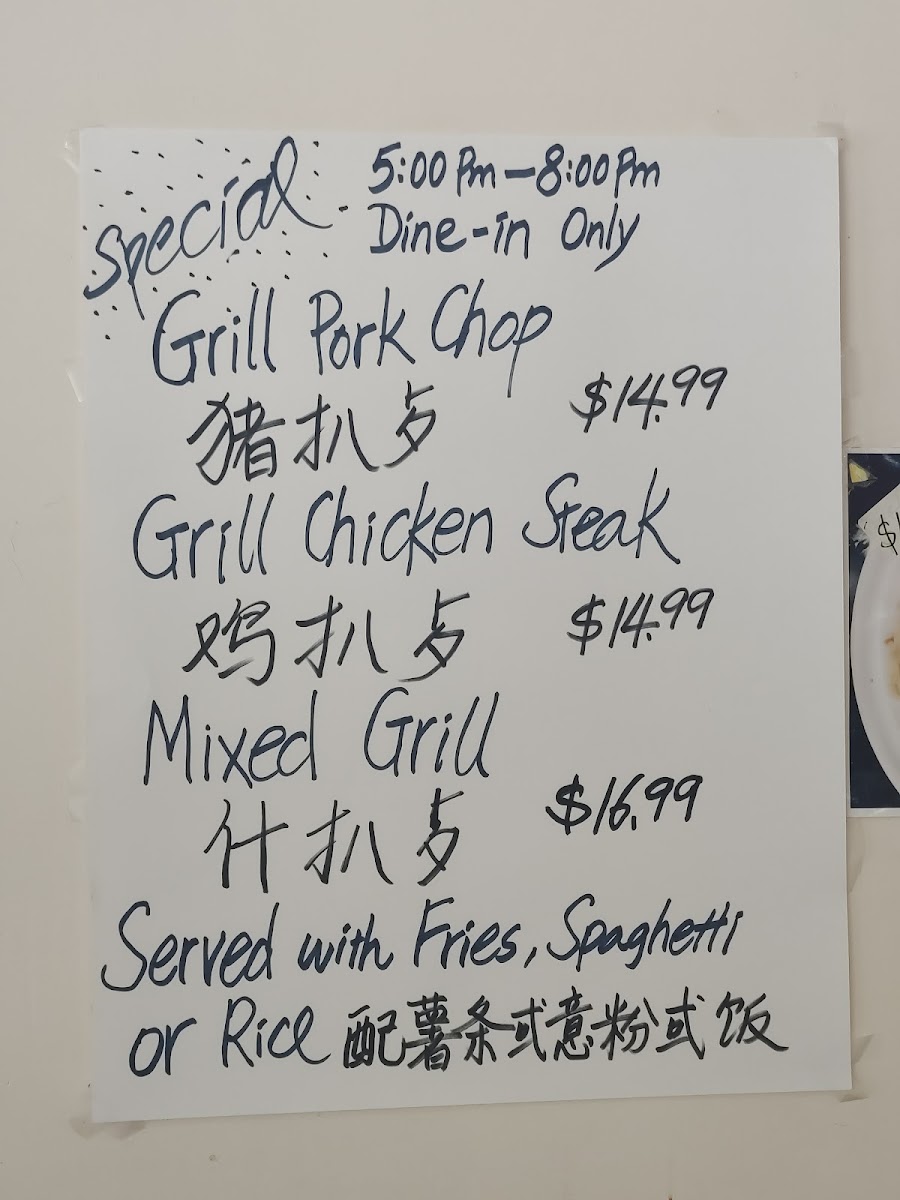 Special
5:00 Pm — 8:00 Pm
Dine-in Only
Grill Pork Chop
猪扒歺 $14.99
Grill Chicken Steak
鸡扒歺 $14.99
Mixed Grill
什扒歺 $16.99
Served with Fries, Spaghetti
or Rice 配薯条或意粉或饭